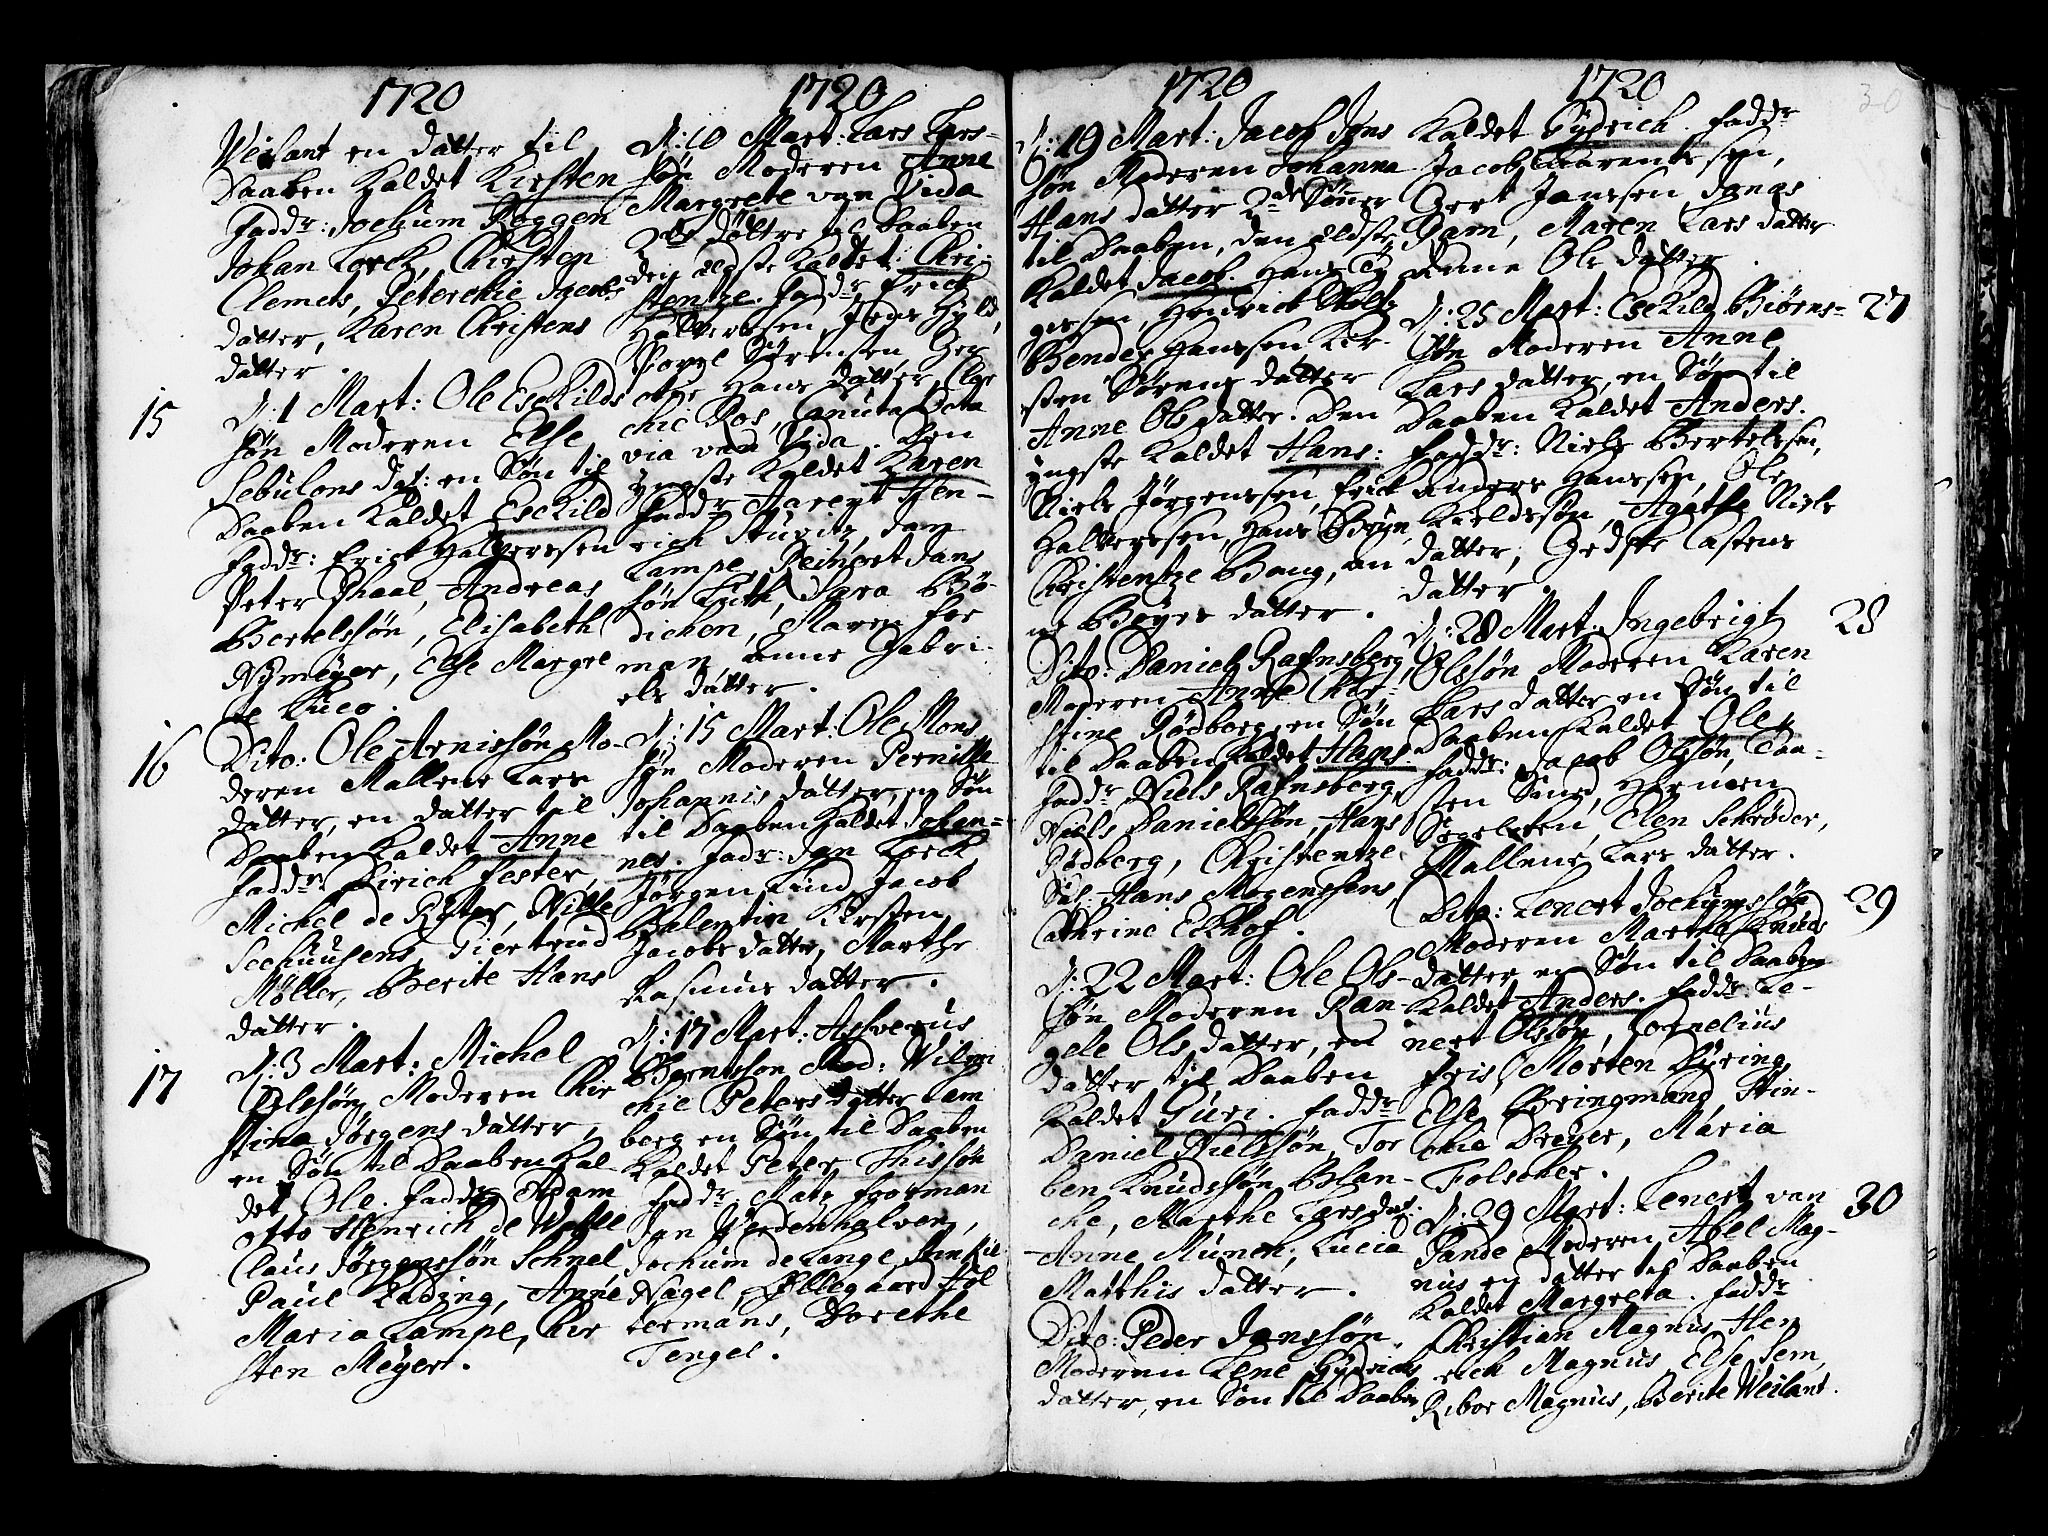 1720
Weisant en datter til
Daaben kaldet Kirsten
Faddr: Jochum Roggen
Johan Losek, Christen
Clemets, Peterchie Jacobs
datter, Karen Christens
datter.
15
D: 1 Mart: Ole Eskilds
søn Moderen Else
Sebulons dat: en Søn til
Daaben kaldet Eskild
Faddr: Erick Halversen
Peter Phaal, Andreas
Bertelssøn, Elisabeth
Nÿmeÿer, Else Margre
te Lüco.
16
Dito: Ole Arnissøn Mo-
deren Mallene Lars
datter, en datter til
Daaben kaldet Anne
Faddr: Dirich Fester,
Michel de Rÿter, Wille
Seehuusens, Giertrud
Møller, Berite Hans
datter.
17
D: 3 Mart: Michel
Olssøn Moderen Kir
stina Jørgens datter,
en Søn til Daaben kal
det Ole. Faddr: Adam
Otto Henrich de Wolle
Claus Jørgenssøn Schnel
Paul Kading, Anne
Maria Lampe, Kir
sten Meÿer.
1720
D: 10 Mart: Lars Lars-
søn Moderen Anne
Margrete von Vida
2de døttre til Daaben
den ældste kaldet Chri-
stentze. Faddr: Erick
Halversen, Jens Hÿld,
Povel Sørensen,
Hans datter,
chie Ros, Canuta Octa
via von Vida. Den
yngste kaldet Karen
Faddr: Harent Hen-
rich Sturitz, Jan
Lampe, Reinert Jans
søn Lüth, Sara Bø-
dichen, Maren For
man, Anne Gabri-
els datter.
D: 15 Mart: Ole Mons
søn Moderen Pernille
Johannis datter, en Søn
til Daaben kaldet Johan-
nes. Fadr: Jan Losek
Jørgen Lind, Jacob
Valentin, Kirsten
Jacobs datter, Marthe
Rasmus datter.
D: 17 Mart: Ahsverus
Berntsson Mod: Wilm
chie Peters datter Lam
berg en Søn til Daaben
kaldet Peter Thissøn
Faddr: Mats Foorman
Jan Verdenhalven,
Jochum de Lange,
Nagel, Ollegaard Hol
termans, Dorethe
Tengel.
1720
D: 19 Mart: Jacob Jans
søn Moderen Johanna
Hans datter 2de Sønner
til Daaben, den ældste
kaldet Jacob. Hans Tÿ
gesen, Henrick Stoltz
Bendix Hanssen Kir-
sten Sørens datter
Anne Ols datter. Den
yngste kaldet Hans:
Niels Jørgenssen, Erick
Halversen, Hans Bøÿe,
Christentze Bang, An
ne Bøÿes datter.
Dito: Daniel Rafnsberg,
Moderen Anne Chir-
stine Rødberg, en Søn
til Daaben kaldet Hans.
Faddr: Niels Rafnsberg,
Niels Danielssøn, Hans
Rødberg, Christentze
Sal: Hans Mogenssens,
Cathrine Eckhof.
D: 22 Mart: Ole Ols-
søn Moderen Ran-
gele Ols datter, en
datter til Daaben
kaldet Guri. Faddr:
Daniel Nielssøn, Tor
ben Knudssøn, Blan-
che, Marthe Lars dat:
Anne Munch, Lucia
Matthis datter.
Dito: Peder Janssøn
Moderen Lene Gÿdrichs
datter, en Søn til Daaben
1720
30
kaldet Gÿdrich. Faddr:
Jacob Laurentssen,
Gert Janssen, Jonas
Ram, Maren Lars datter
Anne Ols datter.
27
D: 25 Mart: Eskild Biørns-
søn Moderen Anne
Lars datter, en Søn til
Daaben kaldet Anders.
Faddr: Niels Bertelssen,
Anders Hanssen, Ole
Kieldssøn, Agathe Niels
datter, Gedske Castens
datter.
28
D: 28 Mart: Ingebrigt
Olssøn Moderen Karen
Lars datter en Søn til
Daaben kaldet Ole
Faddr: Jacob Olssøn, Caa-
sten Smed, Hermen
Segelcken, Elen Schrøder,
Mallene Lars datter.
29
Dito: Lenert Jochumssøn
Moderen Martha Knuds
datter en Søn til Daaben
kaldet Anders. Faddr: Le-
nert Olssøn, Cornelius
Fris, Morten Düring
Else Bringmand, Stin-
chie Dreÿer, Maria
Folscher.
30
D: 29 Mart: Lenert van
Pande Moderen, Abel Mag-
nus en datter til Daaben
kaldet Margreta. Faddr:
Christian Magnus, Hen
rich Magnus, Else Sem,
Ribor Magnus, Berite Weilant.